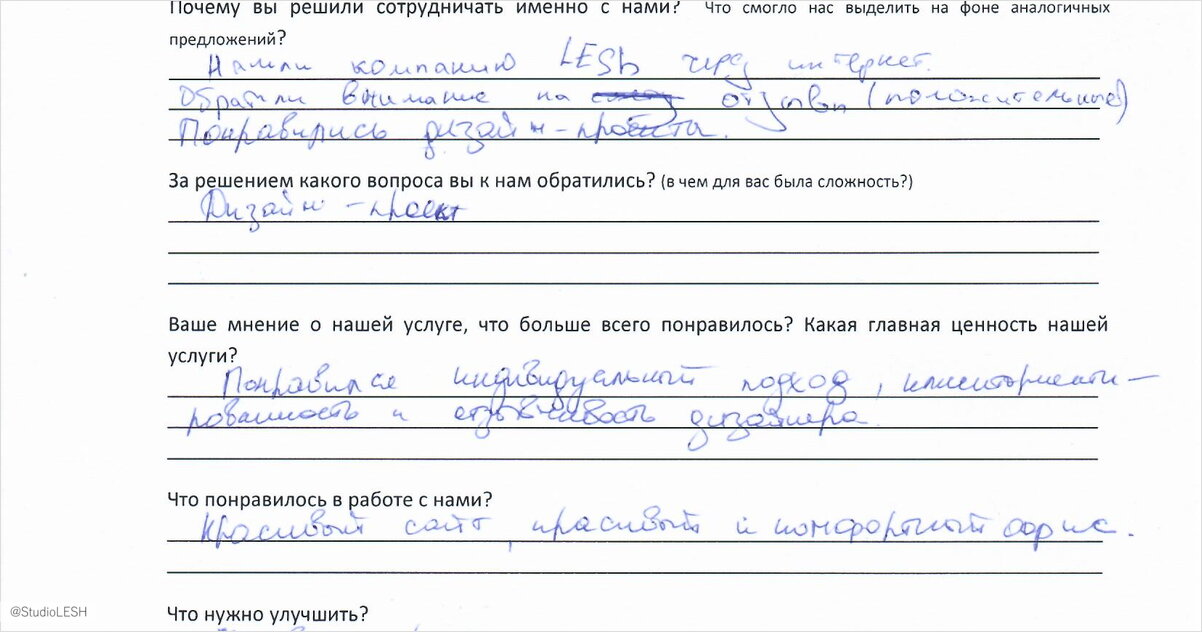 Почему вы решили сотрудничать именно с нами? Что смогло нас выделить на фоне аналогичных
предложений?
Нашли компанию LESh через интернет.
Обратили внимание на отзывы (положительные)
Понравились дизайн-проекты.
За решением какого вопроса вы к нам обратились? (в чем для вас была сложность?)
Дизайн-проект
Ваше мнение о нашей услуге, что больше всего понравилось? Какая главная ценность нашей
услуги?
Понравился индивидуальный подход, клиентоориенти-
рованность и отзывчивость дизайнера.
Что понравилось в работе с нами?
Красивый сайт, красивый и комфортный офис.
@StudioLESH
Что нужно улучшить?